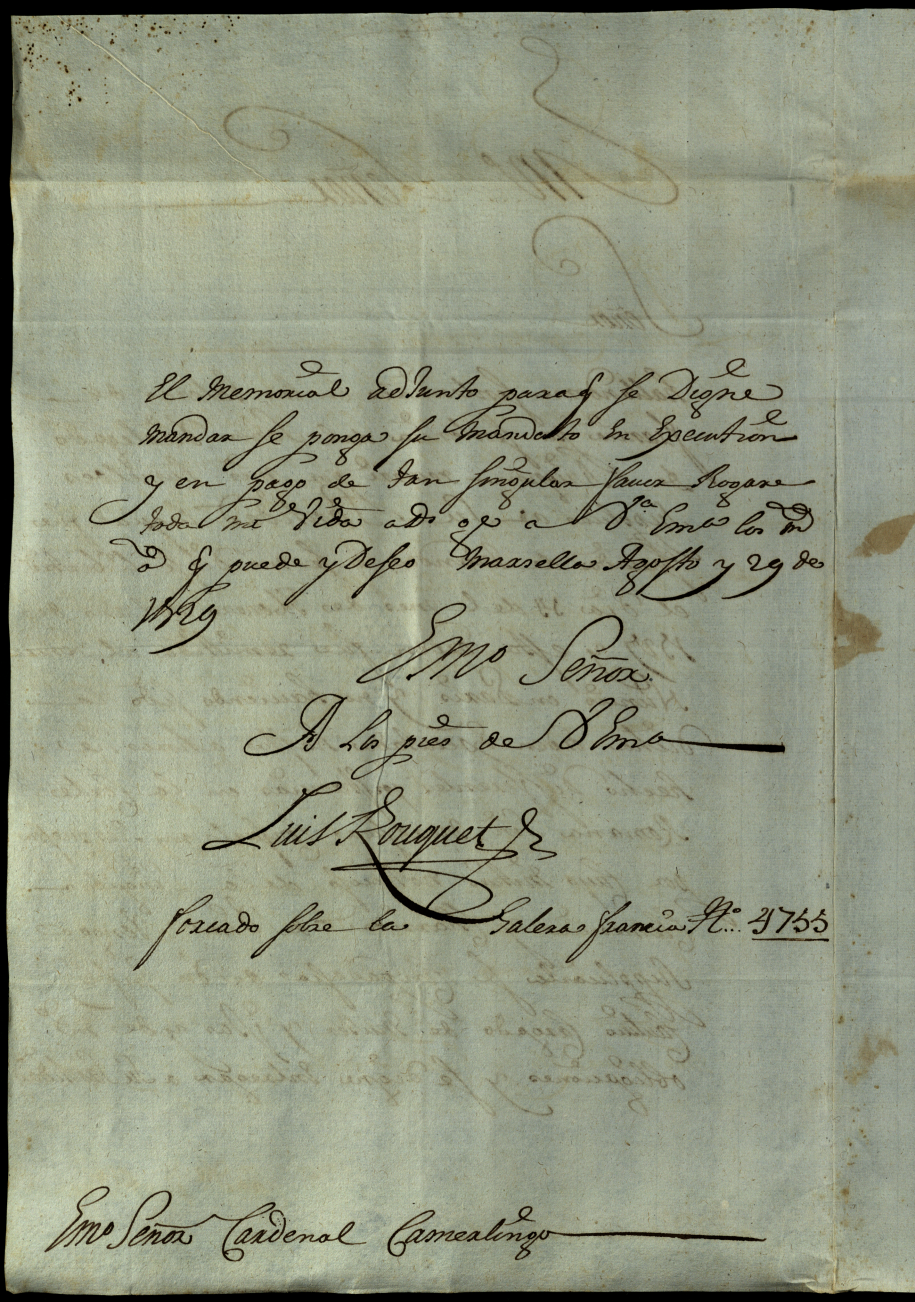 El Memorial adJunto paraq se Digne
Mandar se ponga su Mandato En Execution
y en pago de tan singular favor Rogare
toda mi Vida a Ds ge a Va Ema los md
as q puede y Deseo Marsella Agosto y 29 de
Emo Señor
A Los pies de V Ema
Luis Rouquet
forcado sobre la Galera francia No... 4755
Emo Señor Cardenal Camerlingo